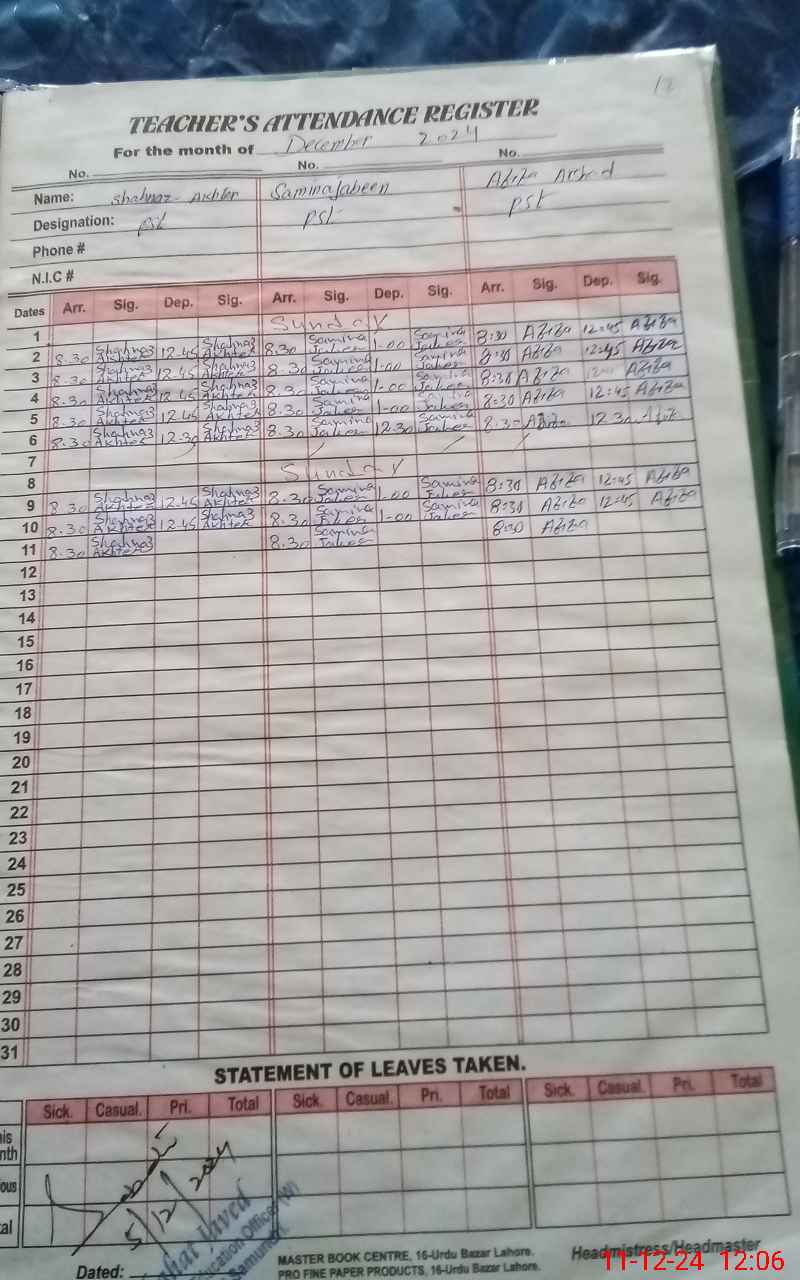 12
TEACHER'S ATTENDANCE REGISTER
For the month of December 2024
No. No. No.
Name: Shahnaz Akhter Samina Jabeen Abiza Arshad
Designation: pst pst pst
Phone #
N.I.C #
Dates Arr. Sig. Dep. Sig. Arr. Sig. Dep. Sig. Arr. Sig. Dep. Sig.
1 Sunday
2 8.30 Shahnaz Akhter 12.45 Shahnaz Akhter 8.30 Samina Jabeen 1-00 Samina Jabeen 8:30 Abiza 12:45 Abiza
3 8.30 Shahnaz Akhter 12.45 Shahnaz Akhter 8.30 Samina Jabeen 1-00 Samina Jabeen 8:30 Abiza 12:45 Abiza
4 8.30 Shahnaz Akhter 12.45 Shahnaz Akhter 8.30 Samina Jabeen 1-00 Samina Jabeen 8:30 Abiza Abiza
5 8.30 Shahnaz Akhter 12.45 Shahnaz Akhter 8.30 Samina Jabeen 1-00 Samina Jabeen 8:30 Abiza 12:45 Abiza
6 8.30 Shahnaz Akhter 12.30 Shahnaz Akhter 8.30 Samina Jabeen 12.30 Samina Jabeen 8:30 Abiza 12.30
7
8 Sunday
9 8.30 Shahnaz Akhter 12.45 Shahnaz Akhter 8.30 Samina Jabeen 1-00 Samina Jabeen 8:30 Abiza 12:45 Abiza
10 8.30 Shahnaz Akhter 12.45 Shahnaz Akhter 8.30 Samina Jabeen 1-00 Samina Jabeen 8:30 Abiza 12:45 Abiza
11 8.30 Shahnaz Akhter 8.30 Samina Jabeen 8:30 Abiza
12
13
14
15
16
17
18
19
20
21
22
23
24
25
26
27
28
29
30
31
STATEMENT OF LEAVES TAKEN.
Sick. Casual. Pri. Total Sick. Casual. Pri. Total Sick. Casual. Pri. Total
5/12/2024
Dated:
MASTER BOOK CENTRE, 16-Urdu Bazar Lahore.
PRO FINE PAPER PRODUCTS, 16-Urdu Bazar Lahore.
Headmistress/Headmaster
11-12-24 12:06